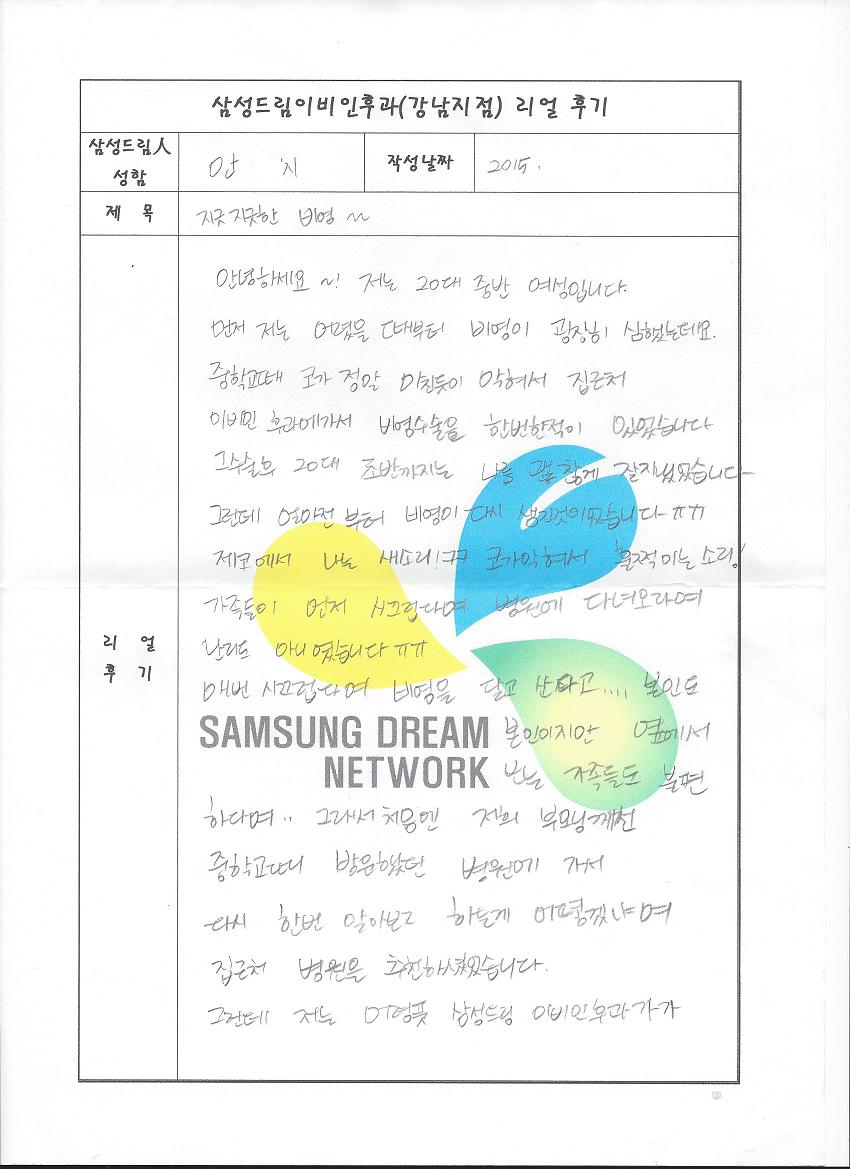 삼성드림이비인후과(강남지점) 리얼 후기
삼성드림人
성함
안 지
작성날짜
2015.
제 목
지긋지긋한 비염~
리 얼
후 기
안녕하세요~! 저는 20대 중반 여성입니다.
먼저 저는 어렸을 때부터 비염이 굉장히 심했는데요.
중학교때 코가 정말 미친듯이 막혀서 집근처
이비인후과에가서 비염수술을 한번한적이 있었습니다
그수술후 20대 초반까지는 나름 괜찮게 잘지냈었습니다
그런데 얼마전부터 비염이 다시 생긴것이였습니다ㅠㅠ
제코에서 나는 새소리!ㅋㅋ 코가막혀서 훌쩍이는 소리!
가족들이 먼저 시끄럽다며 병원에 다녀오라며
난리도 아니였습니다ㅠㅠ
매번 시끄럽다며 비염을 달고 산다고.... 본인도
본인이지만 옆에서
보는 가족들도 불편
하다며.. 그래서 처음엔 저희 부모님께선
중학교때 방문했던 병원에 가서
다시 한번 알아보고 하는게 어떻겠냐며
집근처 병원을 추천하셨었습니다.
그런데 저는 어렴풋 삼성드림 이비인후과가
SAMSUNG DREAM
NETWORK